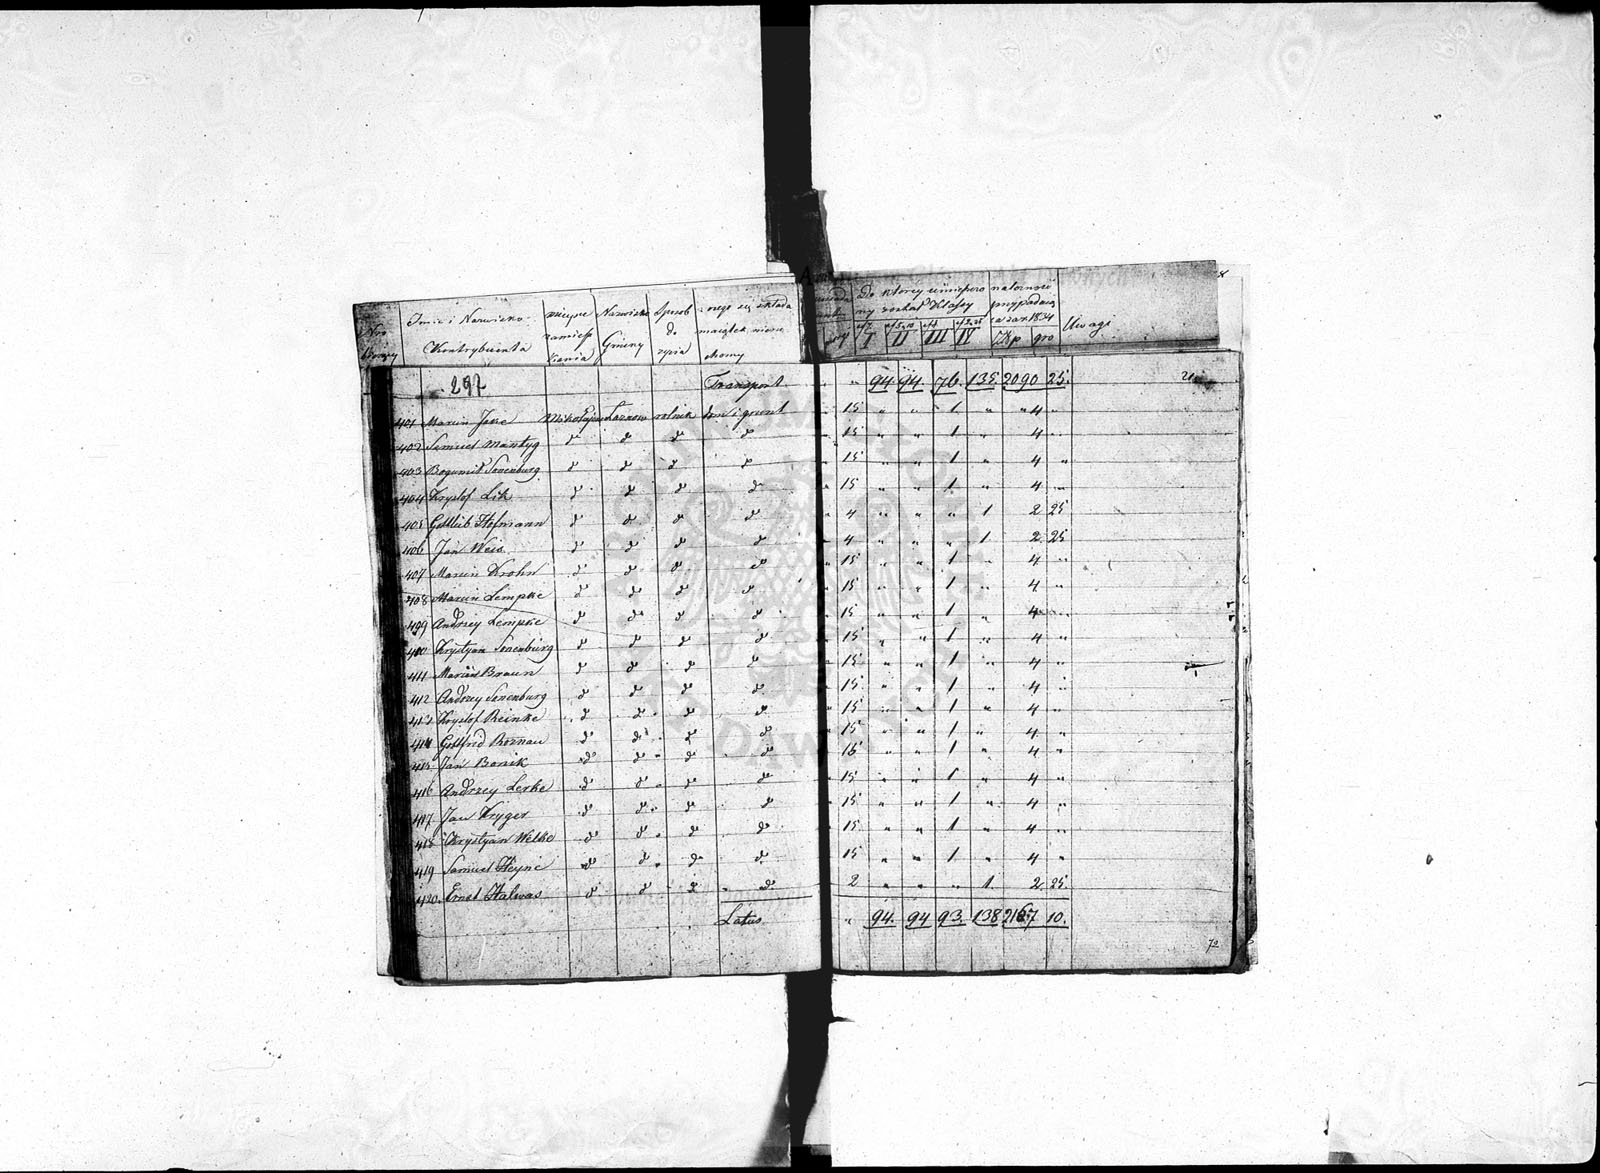 Imie i Nazwisko
Kontrybuenta
mieysce
zamiesz
kania
Nazwisko
Gminy
Sposob
do
życia
z czego się składa
maiątek nieru
chomy
Do ktorey ninieyszo
ny został Klassy
I II III IV
należność
przypadaiąca
za rok 1834
Złp gro
Uwagi
297 Transport " 94 94 76. 135 2090 25.
401 Marcin Jesse Mikołajew Łaznow rolnik dom i grunt 15 " " 1 " 4 "
402 Samuel Mantyg d d d d 15 " " 1 " 4 "
403 Bogumił Sonenburg d d d d 15 " " 1 " 4 "
404 Krystof Lik d d d d 15 " " 1 " 4 "
405 Gottlib Hofmann d d d d 4 " " " 1 2 25
406 Jan Weis d d d d 4 " " " 1 2 25
407 Marcin Krohn d d d d 15 " " 1 " 4 "
408 Marcin Lempke d d d d 15 " " 1 " 4 "
409 Andrzey Lempke d d d d 15 " " 1 " 4 "
410 Krystyan Sonenburg d d d d 15 " " 1 " 4 "
411 Marcin Braun d d d d 15 " " 1 " 4 "
412 Andrzey Sonenburg d d d d 15 " " 1 " 4 "
413 Krystof Reinke d d d d 15 " " 1 " 4 "
414 Gottfrid Roznau d d d d 15 " " 1 " 4 "
415 Jan Bonik d d d d 15 " " 1 " 4 "
416 Andrzey Lerke d d d d 15 " " 1 " 4 "
417 Jan Kryger d d d d 15 " " 1 " 4 "
418 Krystyan Welke d d d d 15 " " 1 " 4 "
419 Samuel Heyne d d d d 15 " " 1 " 4 "
420. Ernst Halwas d d d d 2 " " " 1 2 25
Latus " 94. 94 93. 138 2167 10.
72